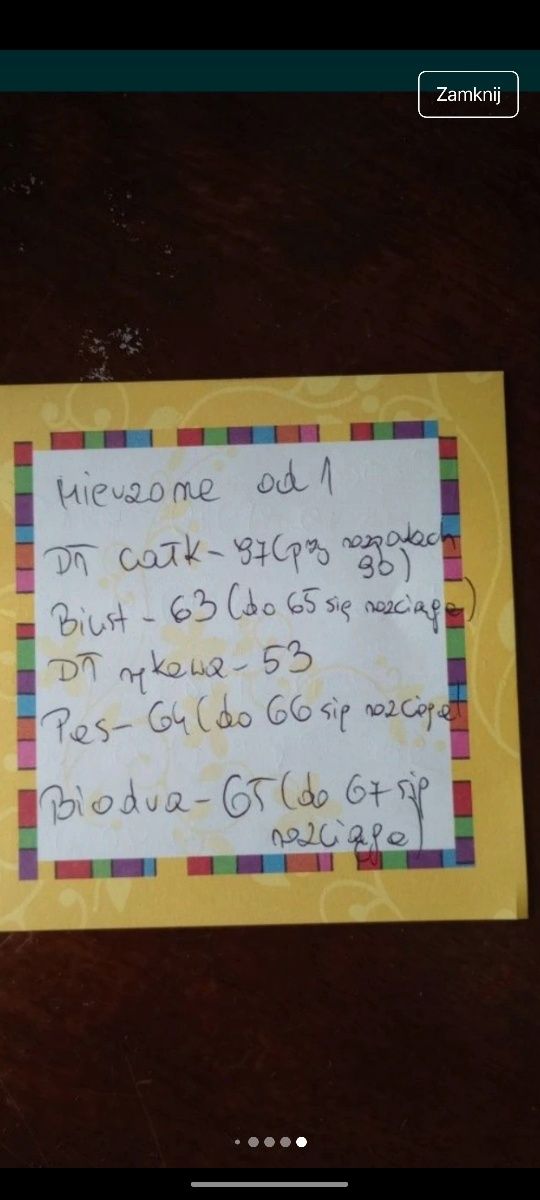 Zamknij
Mierzone od 1
Dł całk - 97 (przy rozporkach
90)
Biust - 63 (do 65 się rozciąga)
Dł rękawa - 53
Pas - 64 (do 66 się rozciąga)
Biodra - 65 (do 67 się
rozciąga)